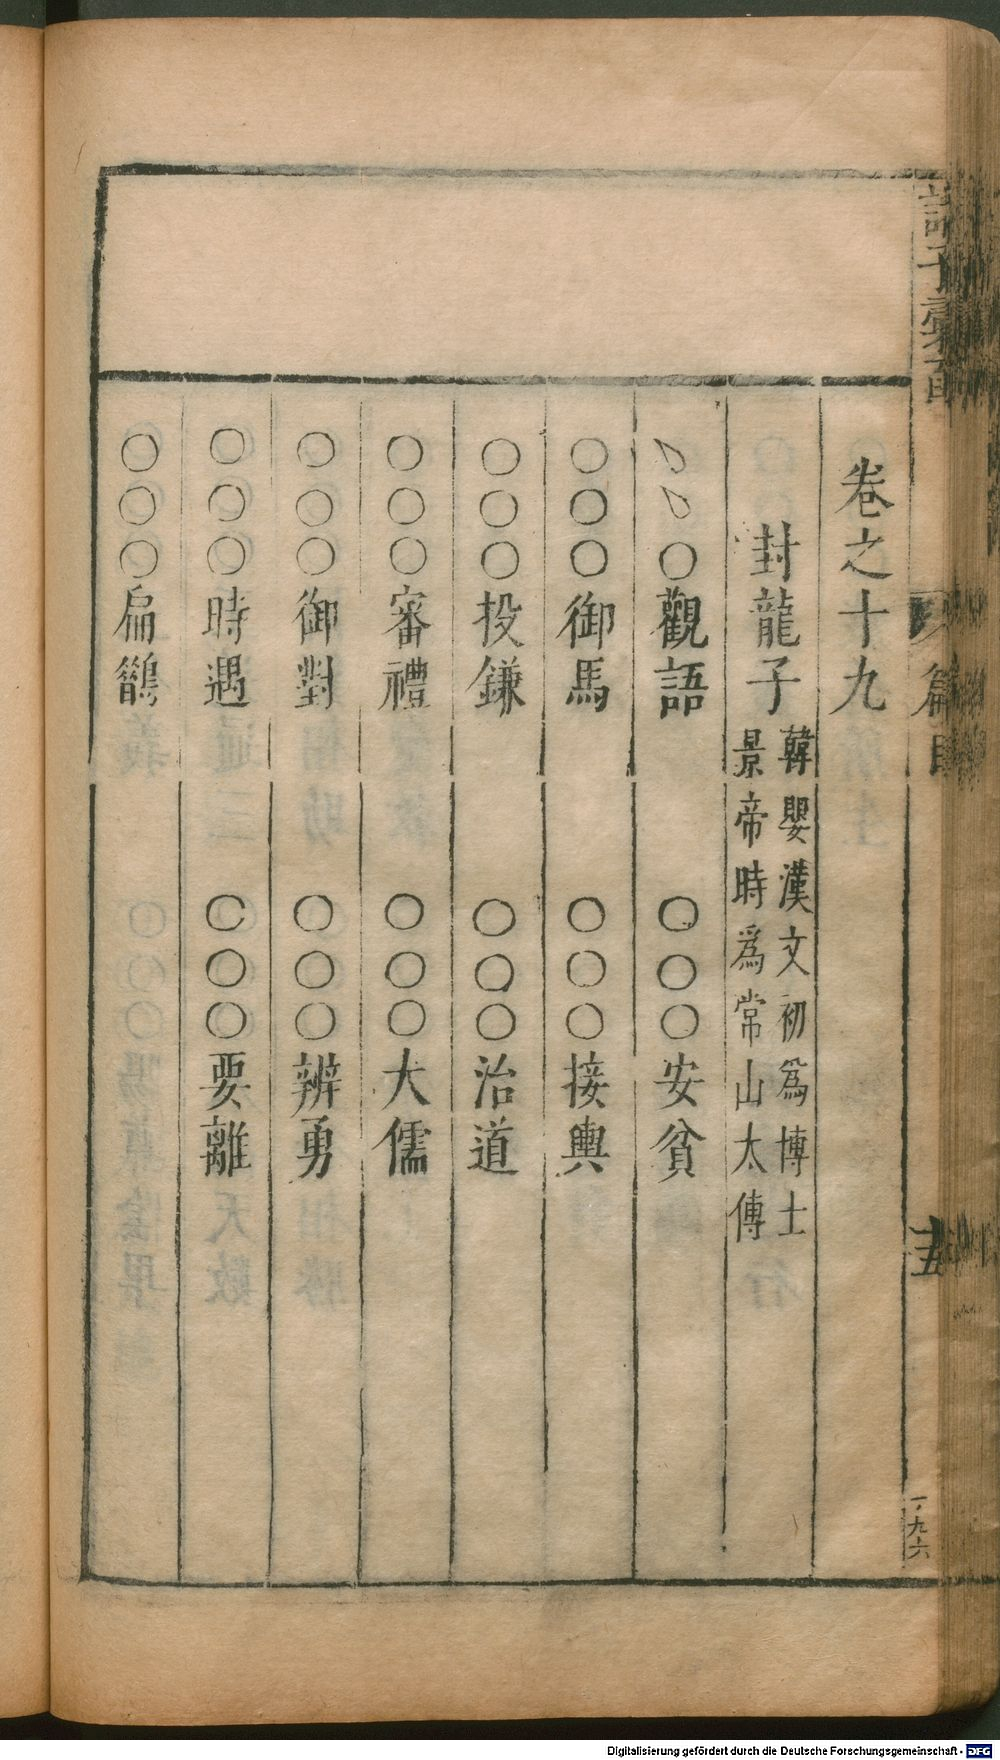 卷之十九
封龍子
韓嬰漢文初爲博士
景帝時爲常山太傅
、、○觀語 ○○○安貧
○○○御馬 ○○○接輿
○○○投鎌 ○○○治道
○○○審禮 ○○○大儒
○○○御對 ○○○辨勇
○○○時遇 ○○○要離
○○○扁鵲
諸子彙函
篇目
一九六
Digitalisierung gefördert durch die Deutsche Forschungsgemeinschaft - DFG